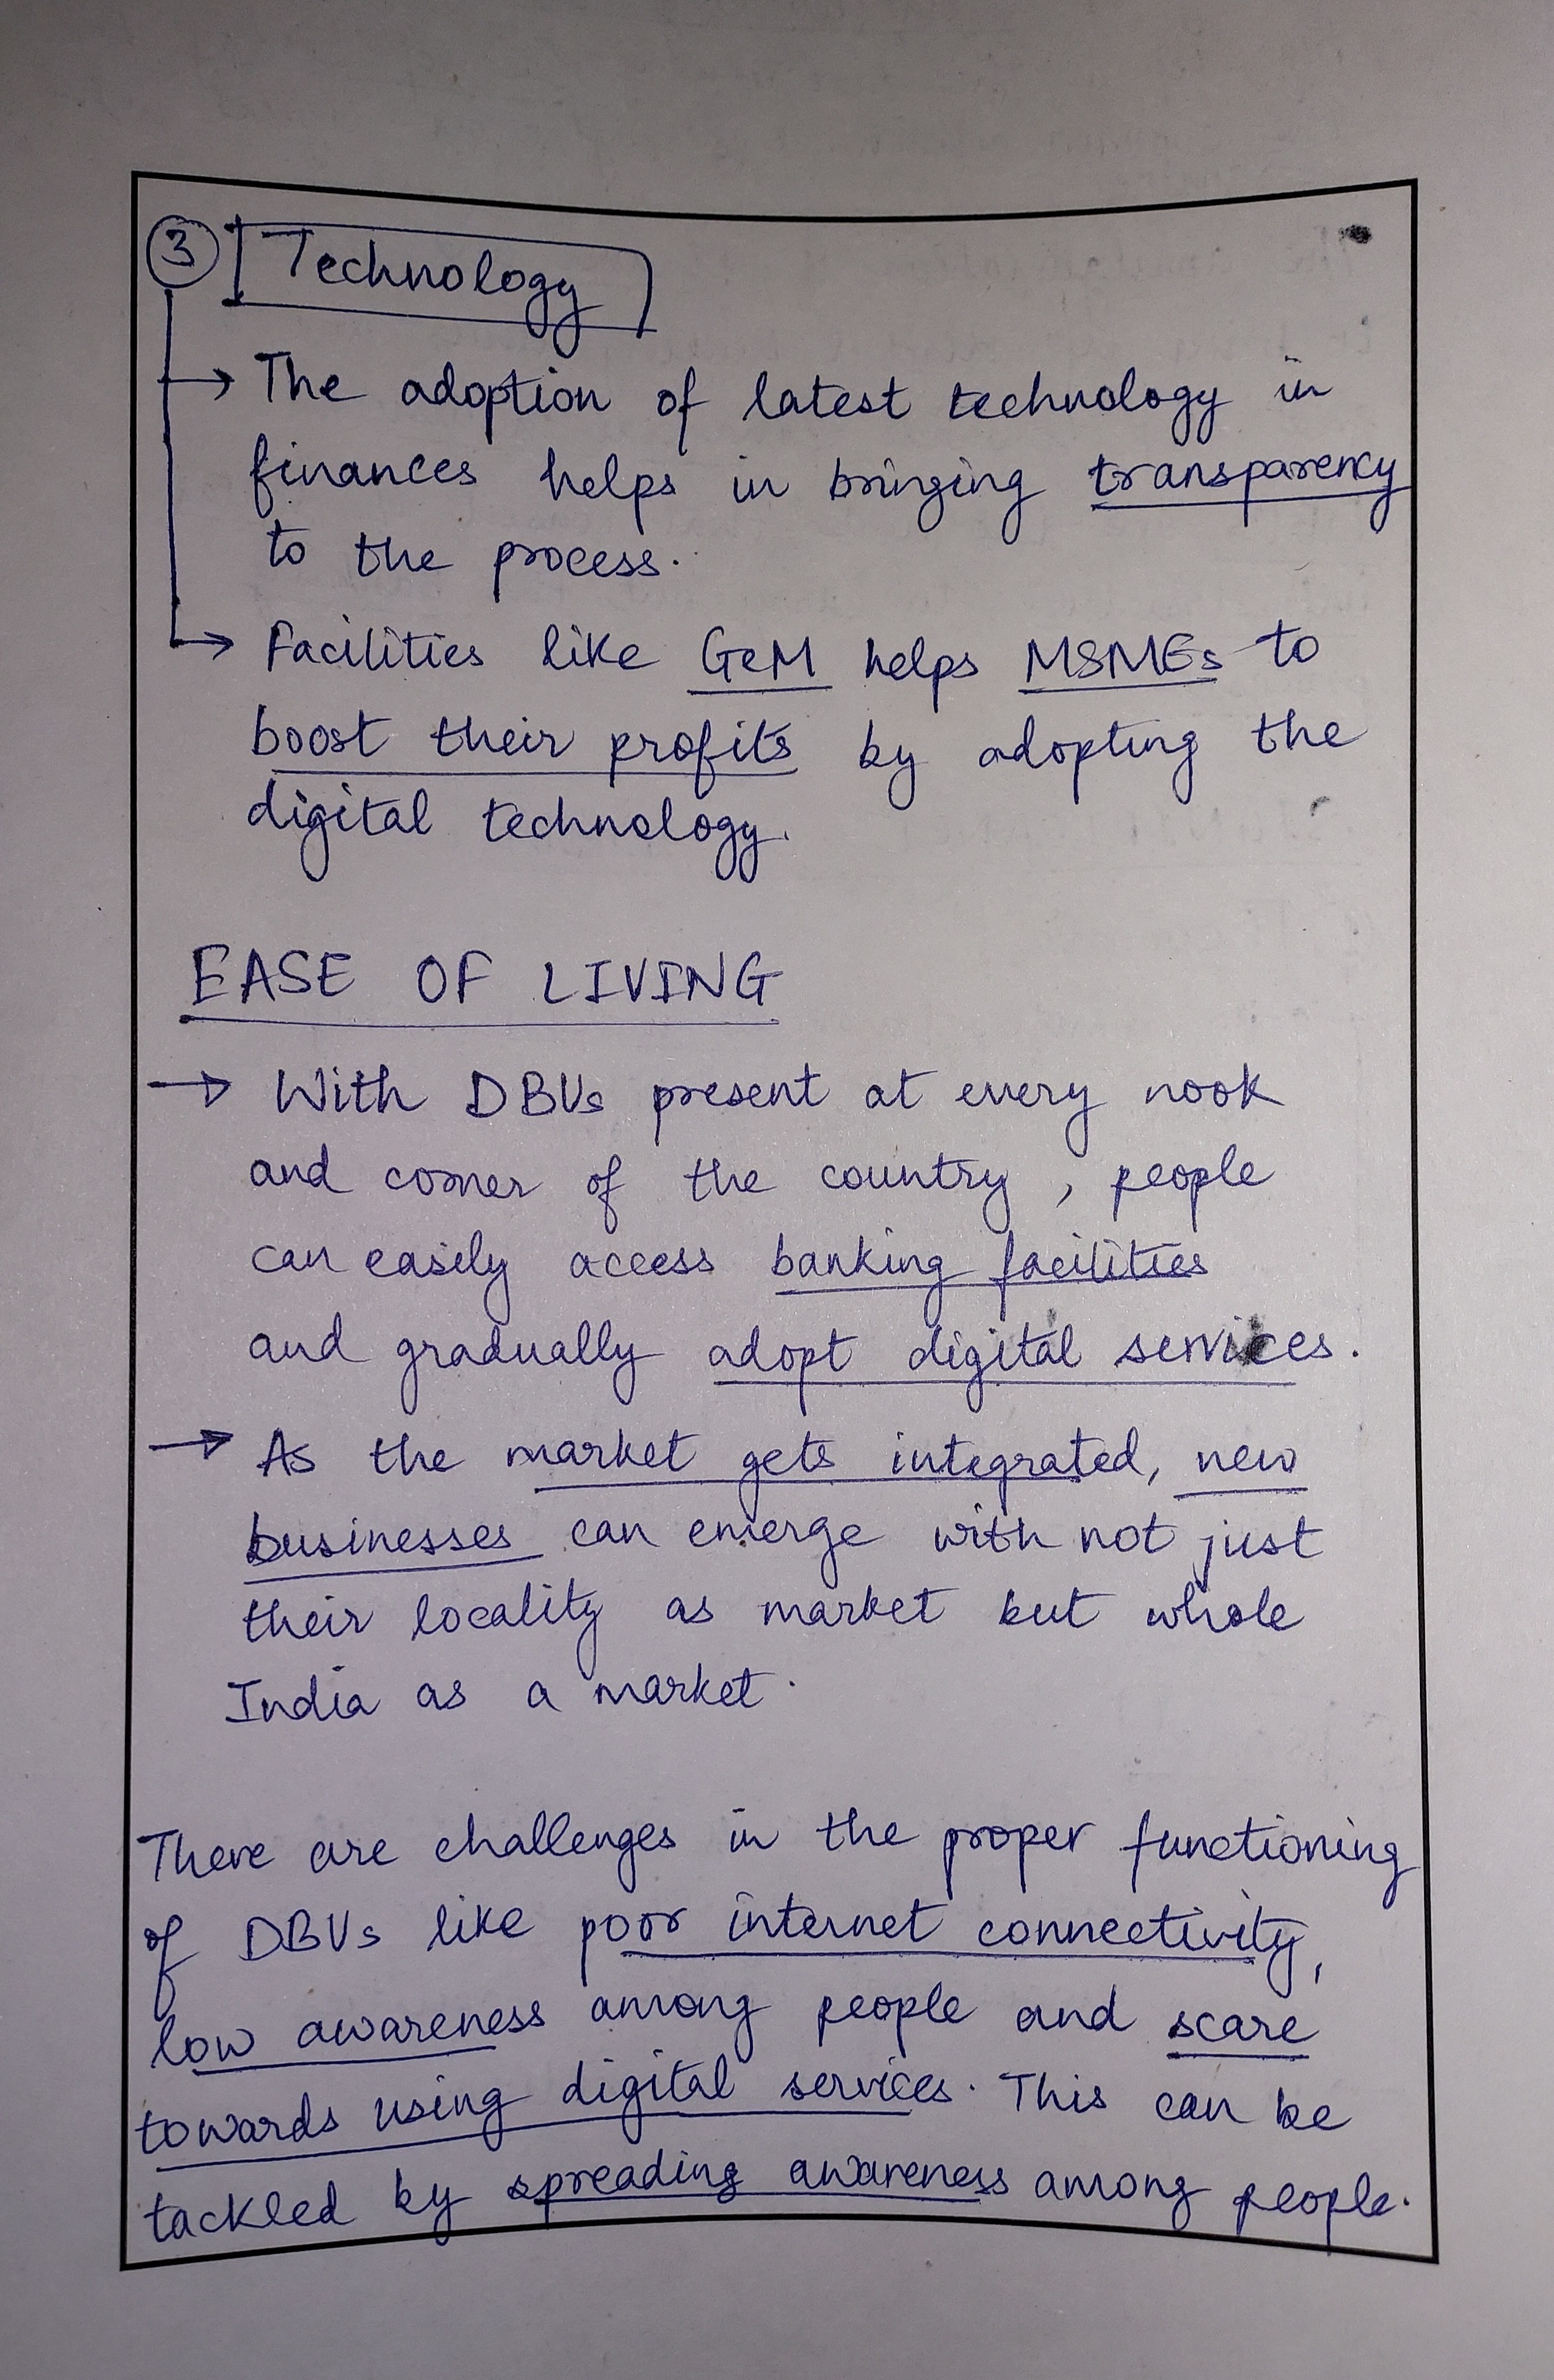 3 Technology
→ The adoption of latest technology in
finances helps in bringing transparency
to the process.
→ Facilities like GeM helps MSMEs to
boost their profits by adopting the
digital technology.
EASE OF LIVING
→ With DBUs present at every nook
and corner of the country, people
can easily access banking facilities
and gradually adopt digital services.
→ As the market gets integrated, new
businesses can emerge with not just
their locality as market but whole
India as a market.
There are challenges in the proper functioning
of DBUs like poor internet connectivity,
low awareness among people and scare
towards using digital services. This can be
tackled by spreading awareness among people.